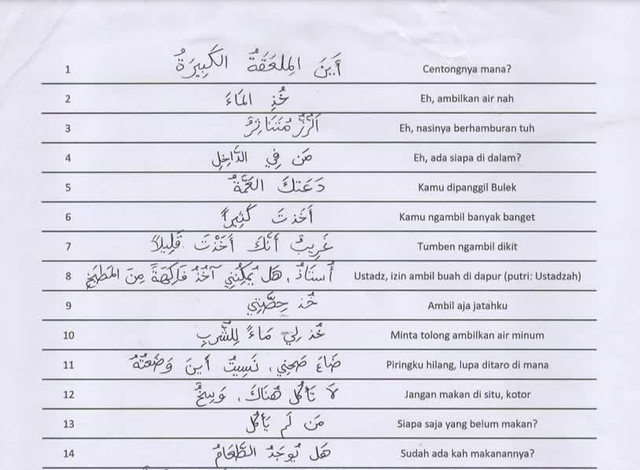 1 أَيْنَ المِلعَقَةُ الكَبِيرَةُ Centongnya mana?
2 خُذِ المَاءَ Eh, ambilkan air nah
3 اَلرُّزُّ مُتَنَاثِرٌ Eh, nasinya berhamburan tuh
4 مَن فِي الدَّاخِلِ Eh, ada siapa di dalam?
5 دَعَتكَ العَمَّةُ Kamu dipanggil Bulek
6 أَخَذتَ كَثِيرًا Kamu ngambil banyak banget
7 غَرِيبٌ أَنَّكَ أَخَذْتَ قَلِيلاً Tumben ngambil dikit
8 أُستَاذُ، هَل يُمكِنُنِي آخُذُ فَاكِهَةً مِنَ المَطبَخِ Ustadz, izin ambil buah di dapur (putri: Ustadzah)
9 خُذ حِصَّتِي Ambil aja jatahku
10 خُذ لِي مَاءً لِلشُّربِ Minta tolong ambilkan air minum
11 ضَاعَ صَحنِي، نَسِيتُ أَينَ وَضَعتُهُ Piringku hilang, lupa ditaro di mana
12 لَا تَأكُل هُنَاكَ، وَسِخٌ Jangan makan di situ, kotor
13 مَن لَم يَأكُل Siapa saja yang belum makan?
14 هَل يُوجَدُ الطَّعَامُ Sudah ada kah makanannya?